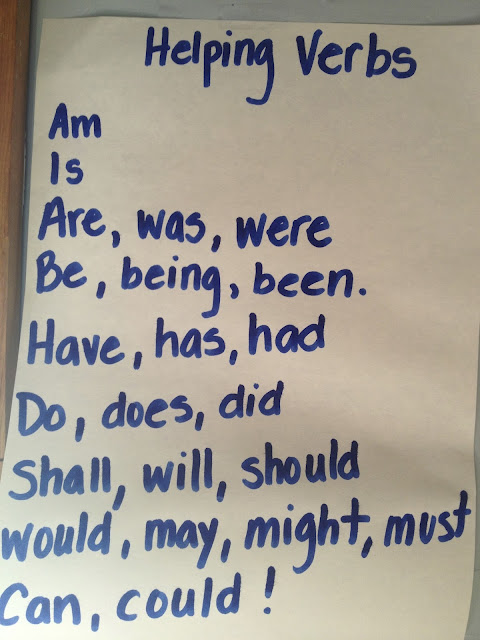 Helping Verbs
Am
Is
Are, was, were
Be, being, been.
Have, has, had
Do, does, did
Shall, will, should
would, may, might, must
Can, could !